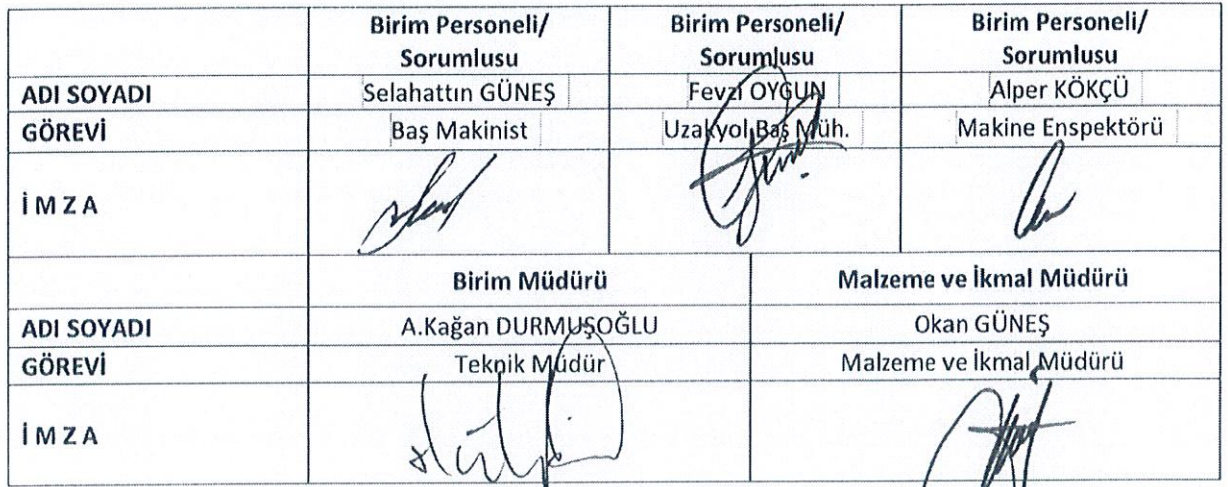 Birim Personeli/ Birim Personeli/ Birim Personeli/
Sorumlusu Sorumlusu Sorumlusu
ADI SOYADI Selahattin GÜNEŞ Fevzi OYGUN Alper KÖKÇÜ
GÖREVİ Baş Makinist Uzakyol Baş Müh. Makine Enspektörü
İ M Z A
Birim Müdürü Malzeme ve İkmal Müdürü
ADI SOYADI A.Kağan DURMUŞOĞLU Okan GÜNEŞ
GÖREVİ Teknik Müdür Malzeme ve İkmal Müdürü
İ M Z A